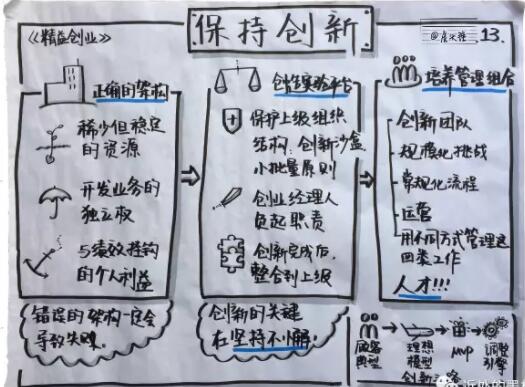 《精益创业》
保持创新
13.
正确的架构
稀少但稳定
的资源
开发业务的
独立权
与绩效挂钩
的个人利益
错误的架构一定会
导致失败.
创造实验平台
保护上级组织
结构、创新沙盒
小批量原则
创业经理人
负起职责
创新完成后,
整合到上级
创新的关键
在坚持不懈.
培养管理组合
创新团队
规模化挑战
常规化流程
运营
用不同方式管理这
四类工作
人才!!!
顾客 → 理想 → MVP → 调整
典型 模型 引擎